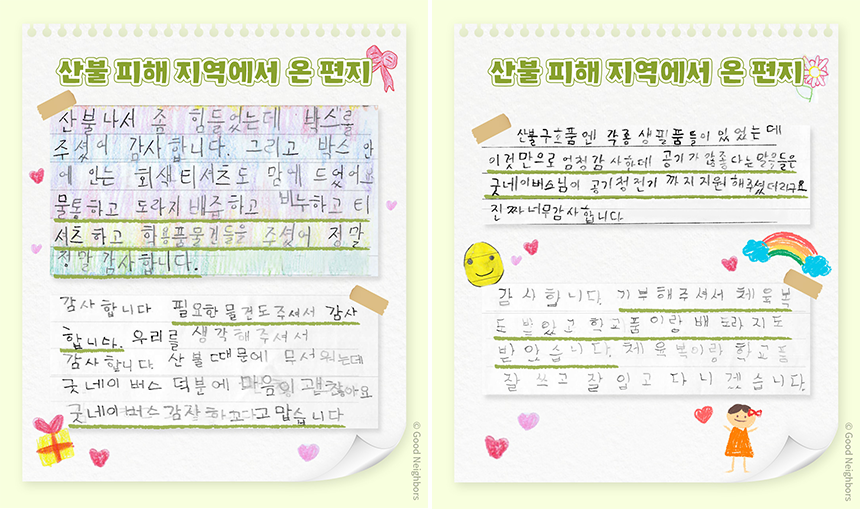 산불 피해 지역에서 온 편지
산불나서 좀 힘들었는데 박스를
주셨어 감사합니다. 그리고 박스 안
에 있는 회색티셔츠도 맘에 드었어요
물통하고 도라지배즙하고 비누하고 티
셔츠하고 학용품물건들을 주셨어 정말
정말 감사합니다.
감사합니다 필요한물건도주셔서 감사
합니다. 우리를 생각해주셔서
감사합니다 산불때문에 무서워는데
굿네이버스 덕분에 마음이 괜찮아요
굿네이버스감사하고 고맙습니다
© Good Neighbors
산불 피해 지역에서 온 편지
산불구호품엔 각종 생필품들이 있었는데
이것만으로 엄청감사한데 공기가 않좋다는말을들은
굿네이버스님이 공기청전기 까지지원해주셨더라구요
진짜너무감사합니다
감사합니다. 기부해주셔서 체육복
도 받았고 학교품이랑 배도라지도
받았습니다. 체육복이랑 학교품
잘쓰고 잘입고 다니겠습니다.
© Good Neighbors